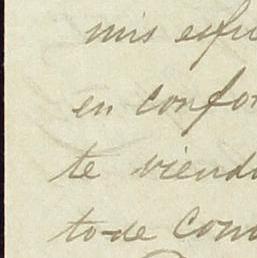 mis esfu
en confor
te viend
to de Com